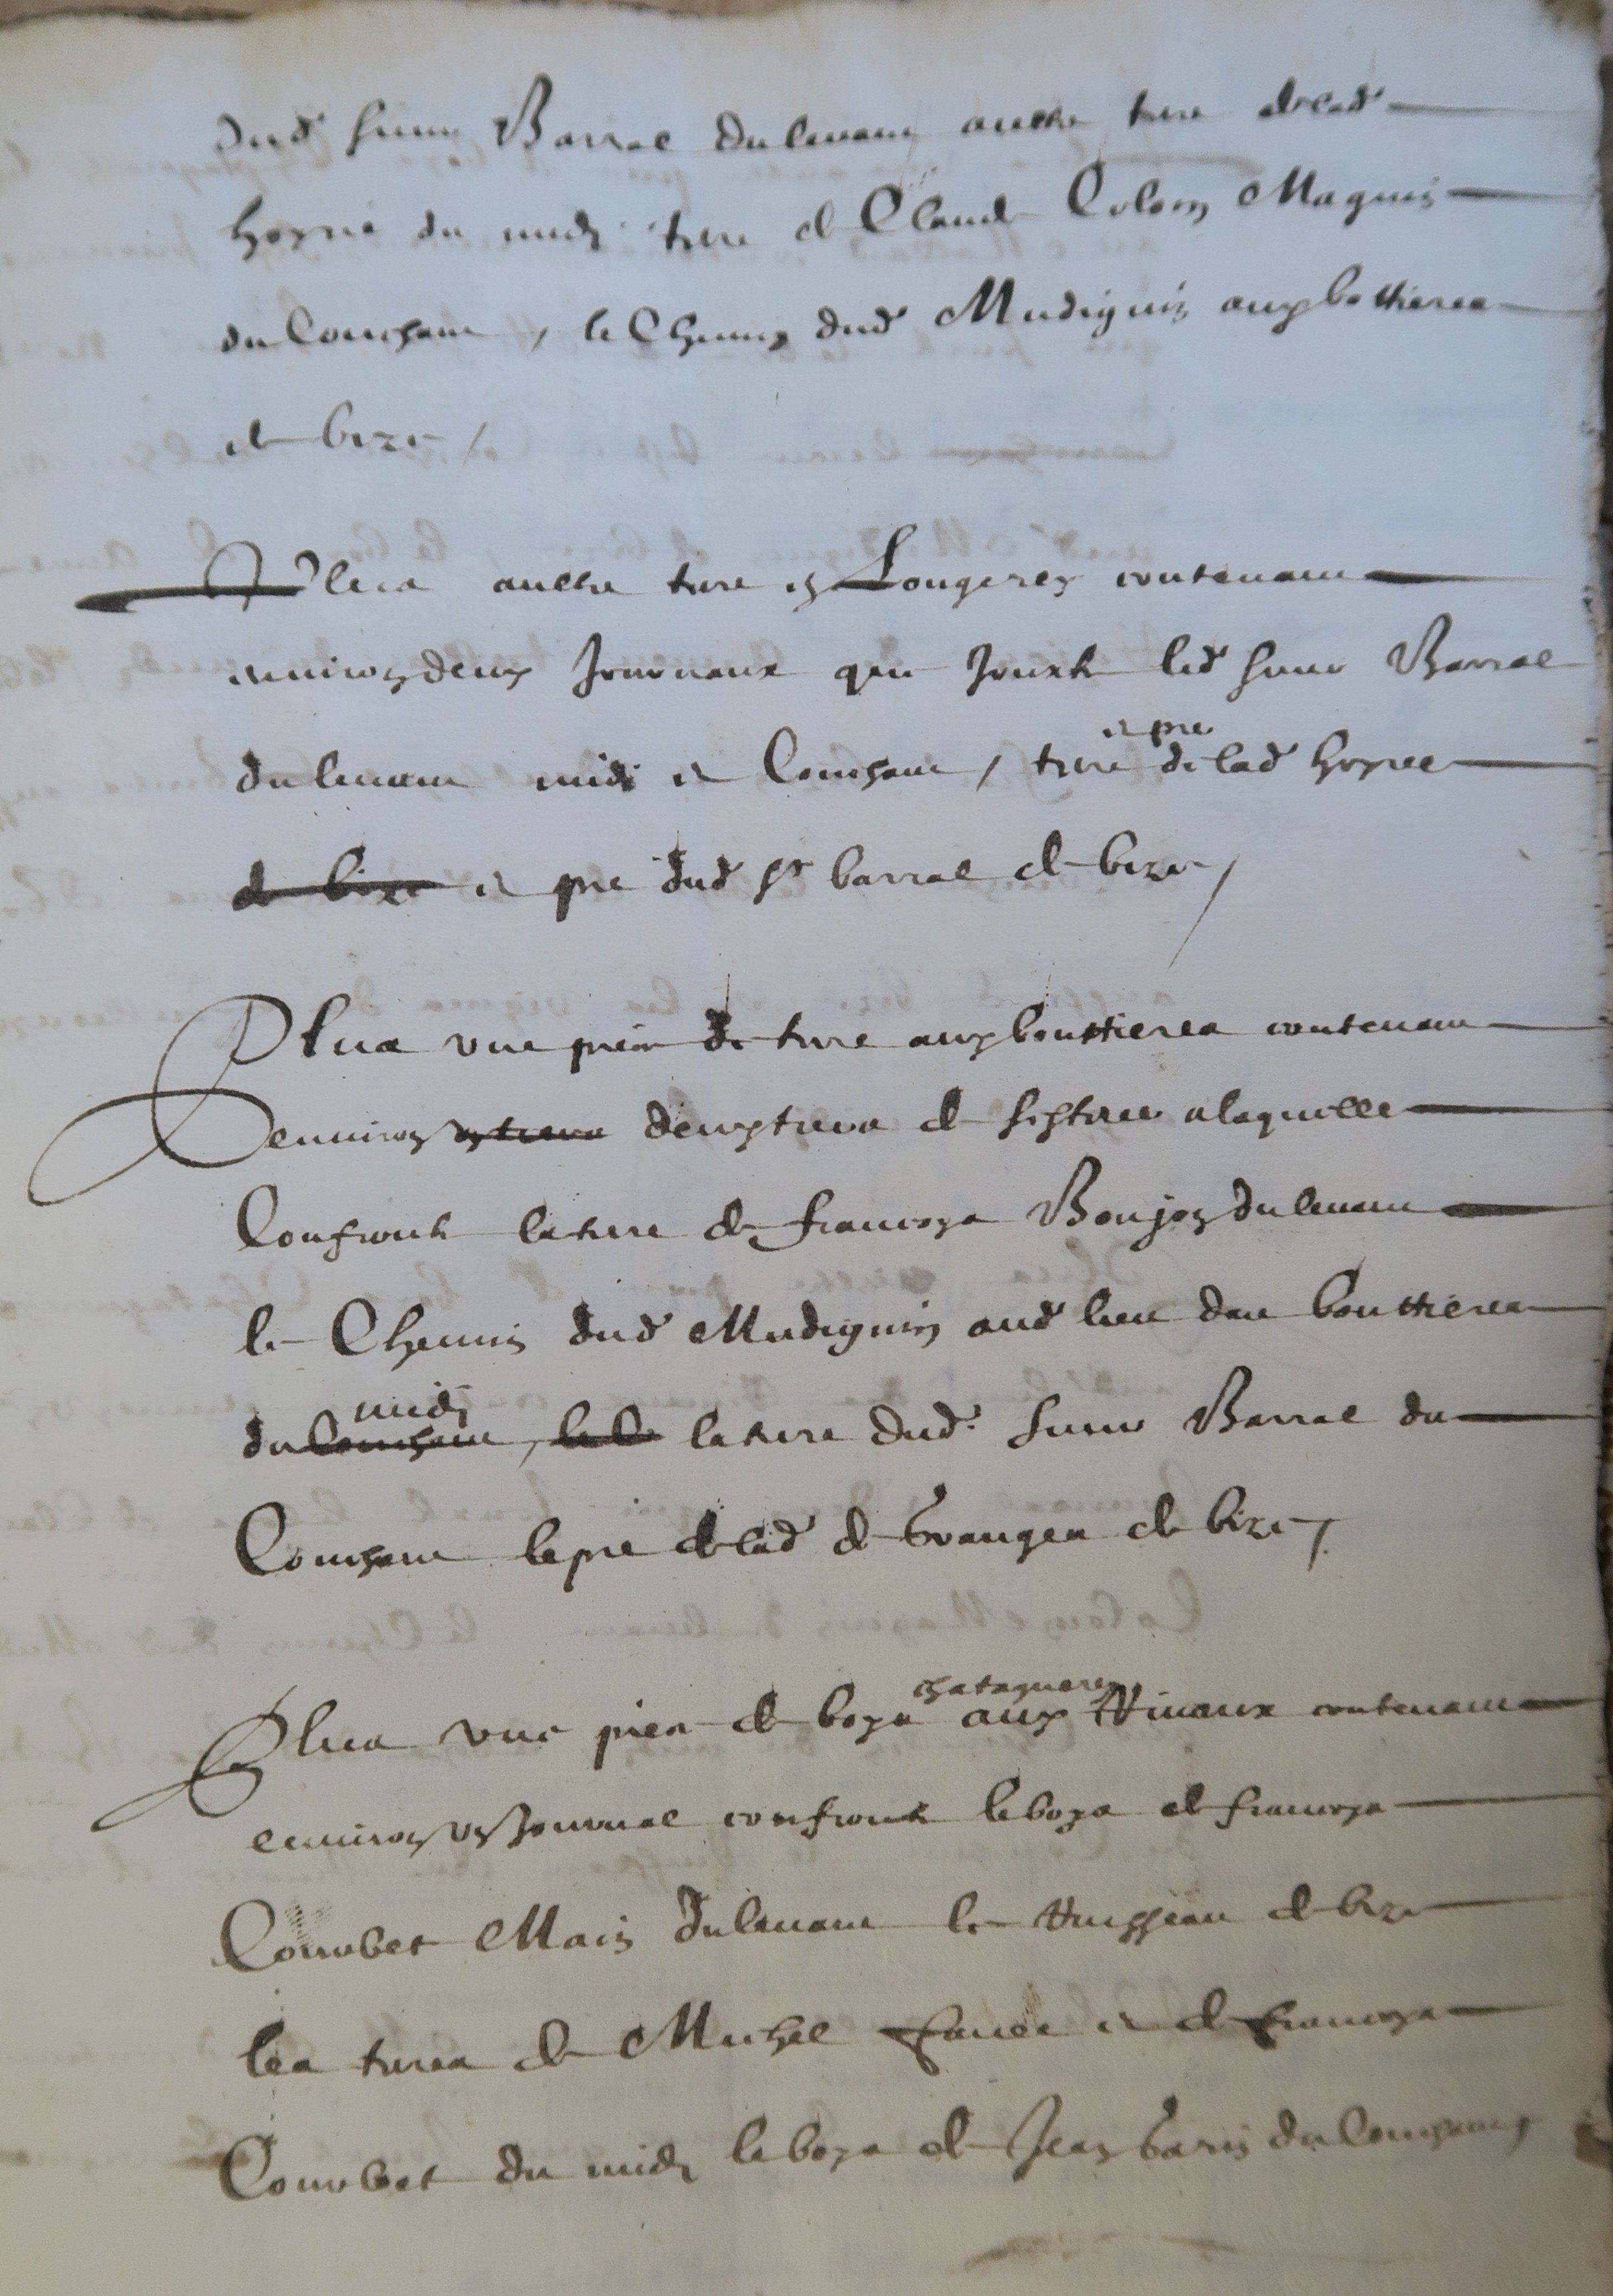 dud sieur Barral du levant aultre terre de lad
hoyrie du midy terre de Claude Colom Magnin
du Couchant, le Chemin dud Mudignin aux bottieres
de bize /
Plus aultre terre en Longerey contenant
environ deux Journaux qui Jouxte led sieur Barral
et pre
du levant midi et Couchant / terre de lad hoyrie
de bize et pre dud Sr barral de bize /
Plus une piece de terre aux bouttieres contenant
environ deux tiers de sesteree a laquelle
Confronte la terre de francoys Bonjon du levant
le Chemin dud Mudignin aud lieu des bouttieres
midy
du Couchant, la terre dud. sieur Barral du
Couchant le pre de lad de Granges de bize /
chatagneray
Plus une piece de boys aux Rivaux contenant
environ un Journal confronte le boys de francoys
Courbet Main du levant le Ruisseau de bize
les terres de Michel favre et de francoys
Courbet du midy le boys de Jean Garin du Couchant /